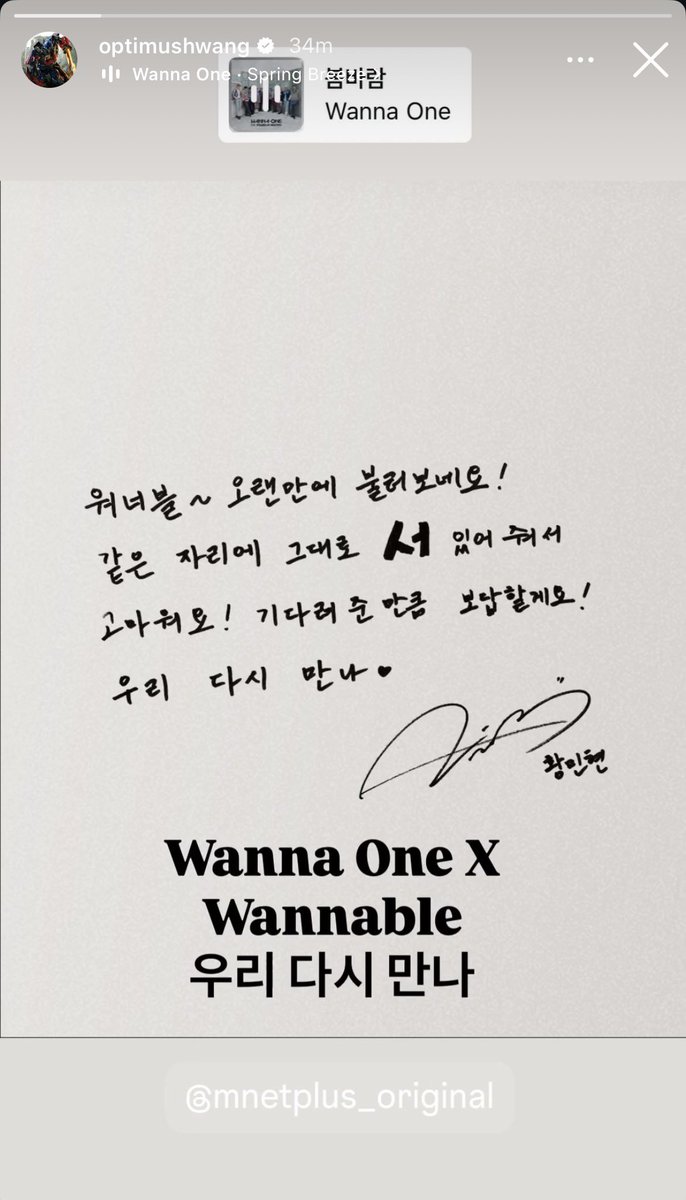 optimushwang 34m
Wanna One · Spring Breeze
봄바람
Wanna One
WANNA ONE
워너블~ 오랜만에 불러보네요!
같은 자리에 그대로 서 있어 줘서
고마워요! 기다려 준 만큼 보답할게요!
우리 다시 만나♥
황민현
Wanna One X
Wannable
우리 다시 만나
@mnetplus_original